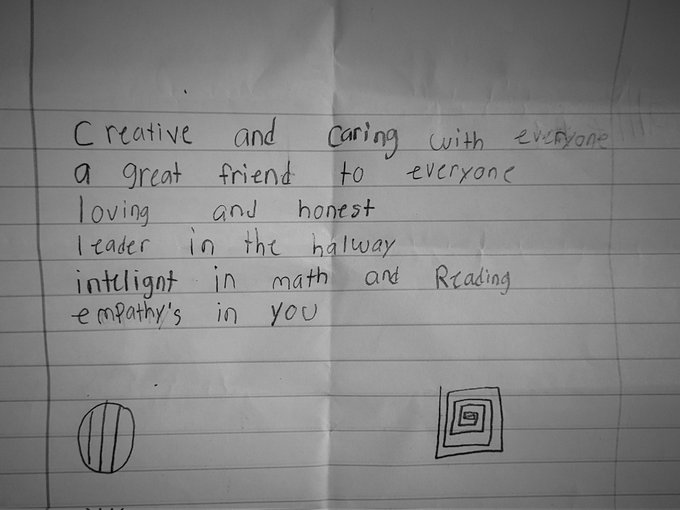 Creative and Caring with everyone
a great friend to everyone
loving and honest
leader in the halway
intelignt in math and Reading
empathy's in you